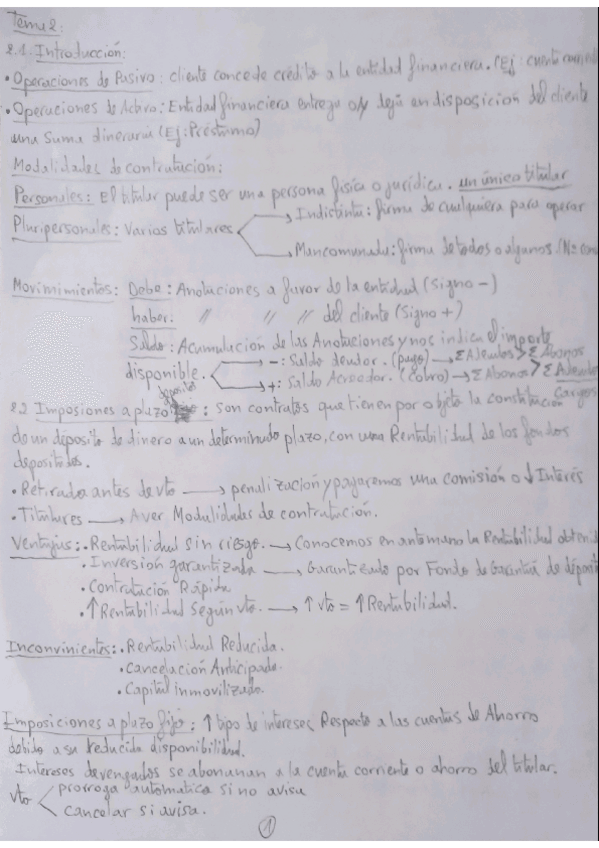 Tema 2:
2.1. Introducción:
• Operaciones de Pasivo: cliente concede crédito a la entidad financiera. (Ej: cuenta
• Operaciones de Activo: Entidad financiera entrega o/y deja en disposición del cliente
una suma dineraria (Ej: Préstamo)
Modalidades de contratación:
Personales: El titular puede ser una persona física o jurídica. un único titular
Pluripersonales: Varios titulares
Indistinta: firma de cualquiera para operar
Mancomunada: firma de todos o algunos.
Movimientos: Debe: Anotaciones a favor de la entidad (signo -)
haber: // // // del cliente (signo +)
Saldo: Acumulación de las Anotaciones y nos indica el importe
disponible.
-: Saldo deudor. (pago) → Σ Adeudos > Σ Abonos
+: Saldo Acreedor. (cobro) → Σ Abonos > Σ Adeudos
Cargos
depósitos
2.2 Imposiones a plazo : son contratos que tienen por objeto la constitución
de un depósito de dinero a un determinado plazo, con una Rentabilidad de los fondos
depositados.
• Retirada antes de vto → penalización y pagaremos una comisión o ↓ Interés
• Titulares → A ver Modalidades de contratación.
Ventajas: • Rentabilidad sin riesgo. → Conocemos en antemano la Rentabilidad
• Inversión garantizada → Garantizado por Fondo de Garantía de
• Contratación Rápida
• ↑ Rentabilidad Según vto. → ↑ vto = ↑ Rentabilidad.
Inconvinientes: • Rentabilidad Reducida.
• Cancelación Anticipada.
• Capital inmovilizado.
Imposiciones a plazo fijo: ↑ tipo de intereses Respecto a las cuentas de Ahorro
debido a su reducida disponibilidad.
Intereses devengados se abonaran a la cuenta corriente o ahorro del titular.
vto
prorroga automatica si no avisa
cancelar si avisa.
1